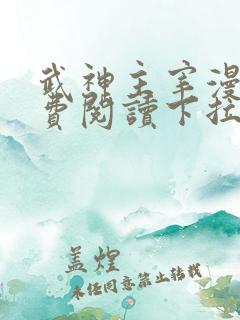 武神主宰漫
費閱讀下拉
盖煌
未经同意禁止转载